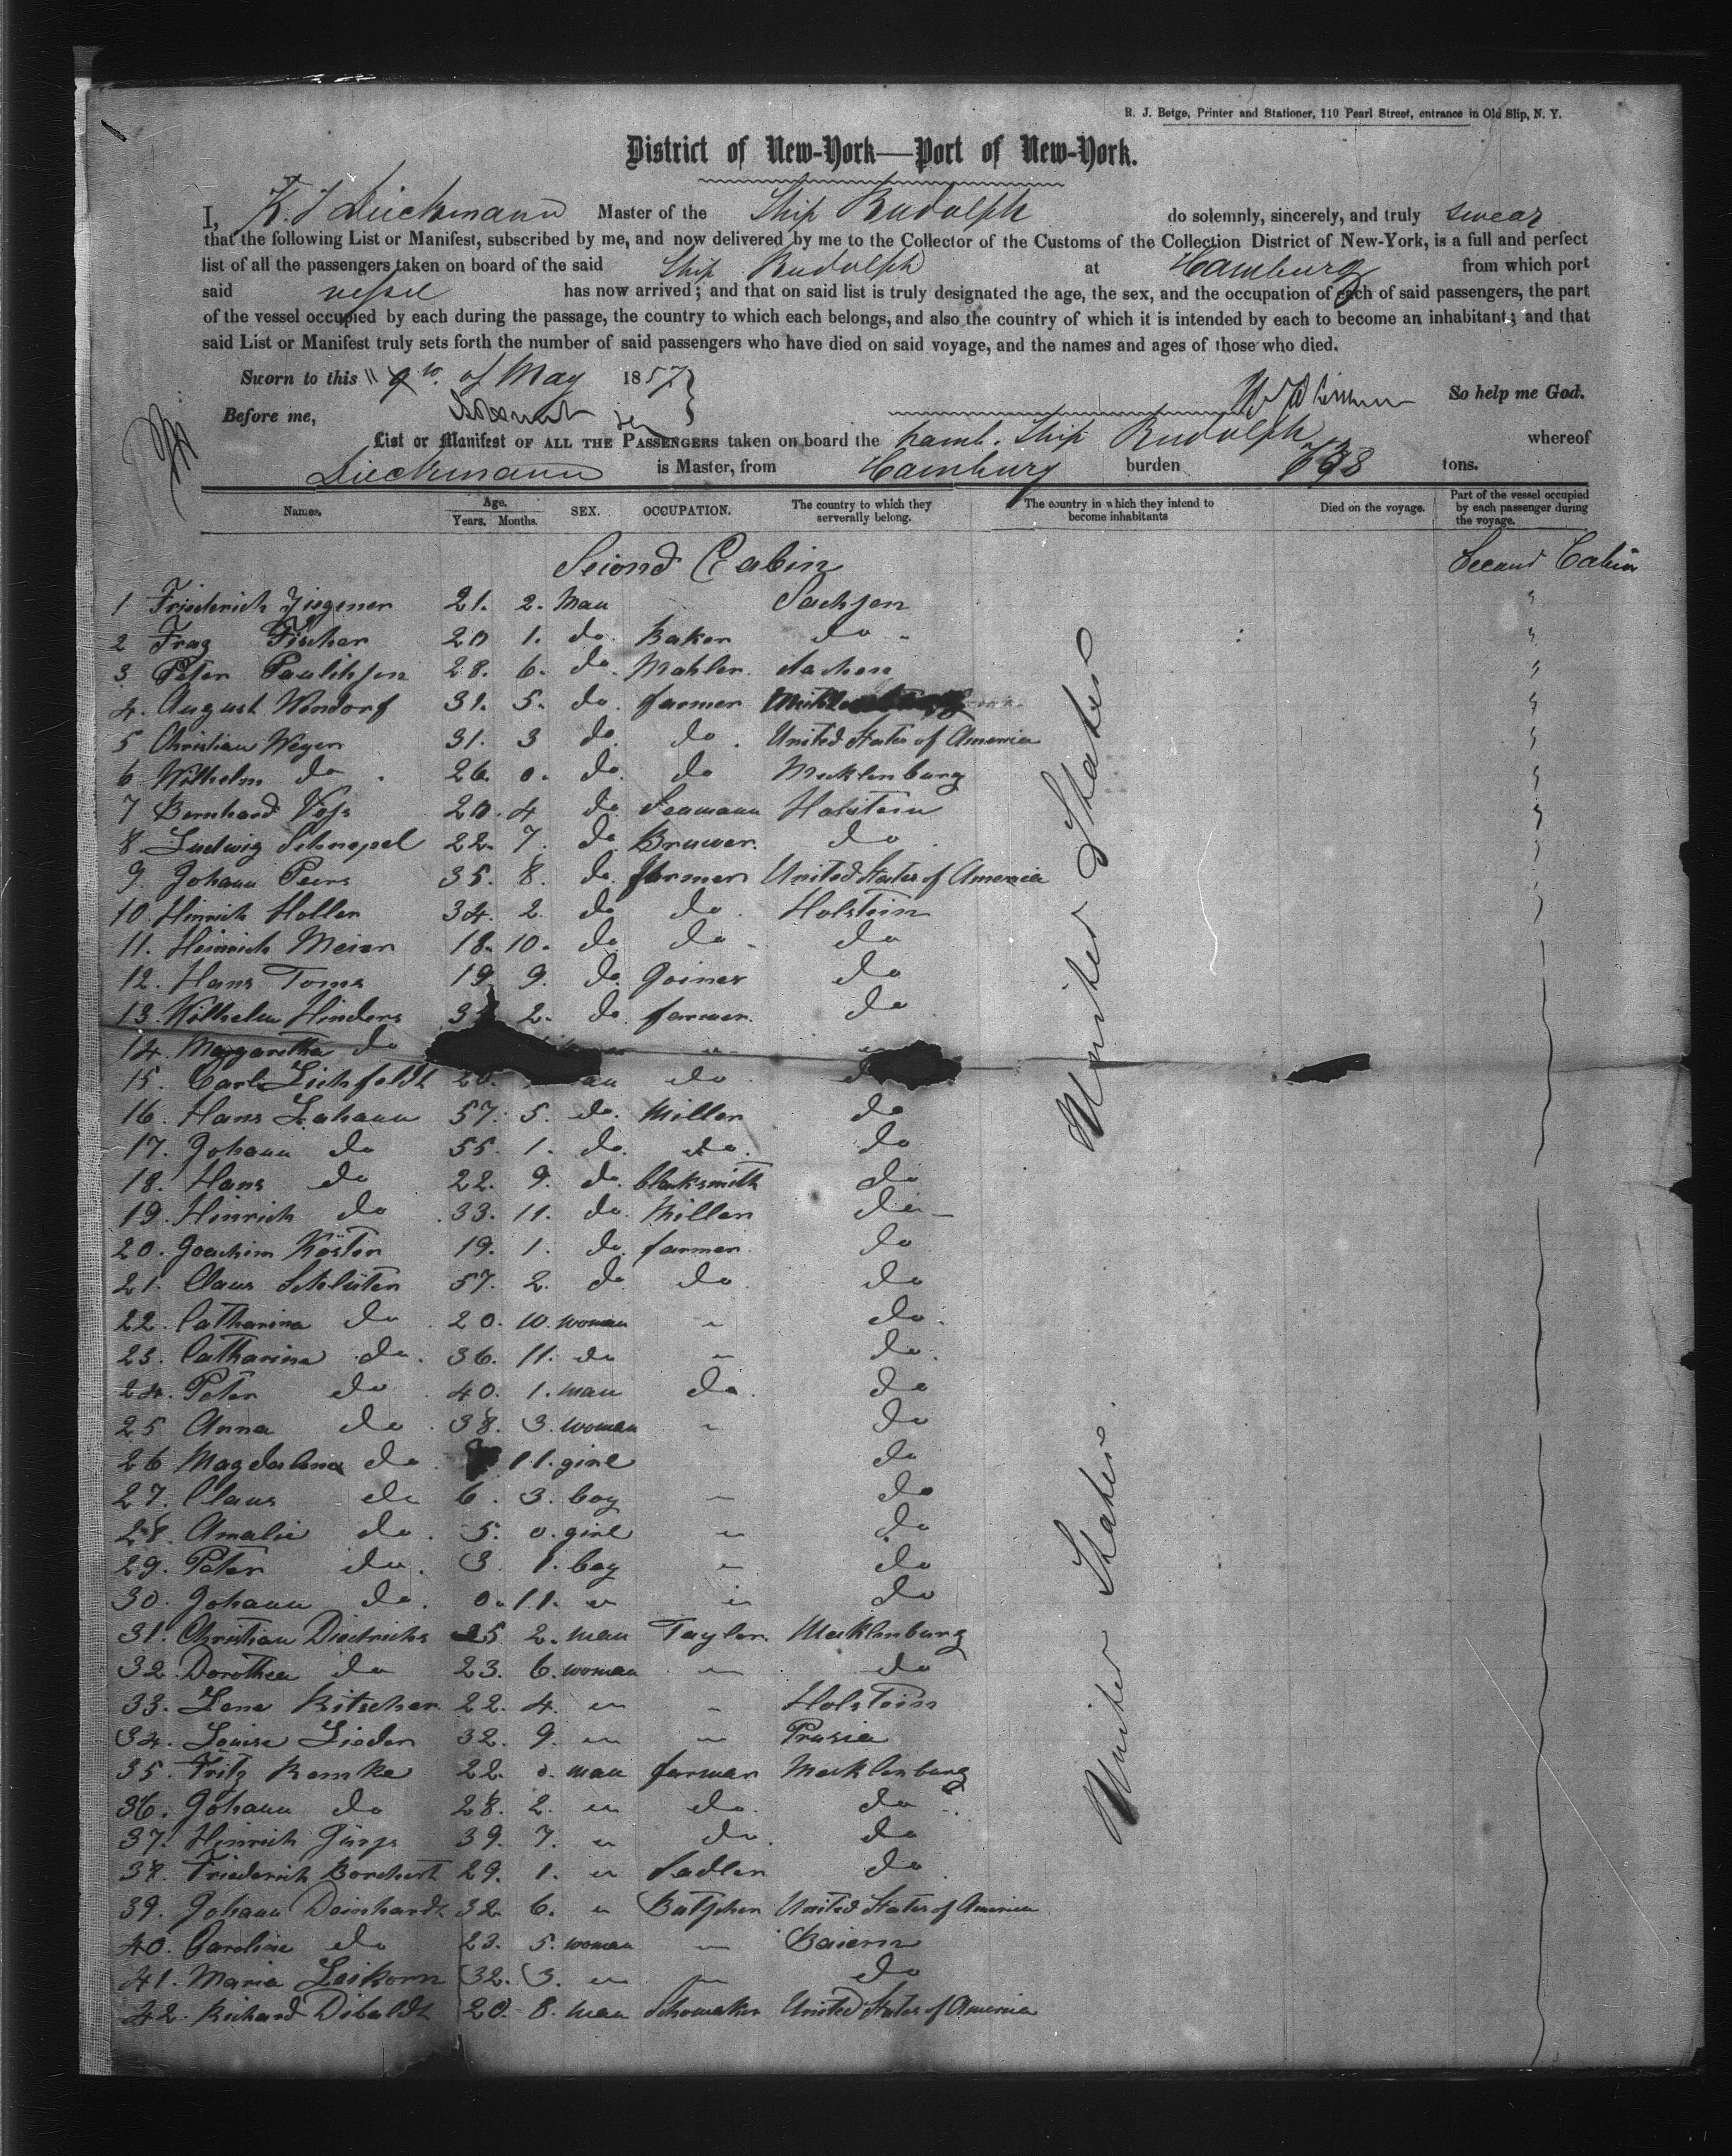 R. J. Betge, Printer and Stationer, 110 Pearl Street, entrance in Old Slip, N. Y.
District of New-York—Port of New-York.
I, Dieckmann Master of the Ship Rudolph do solemnly, sincerely, and truly swear
that the following List or Manifest, subscribed by me, and now delivered by me to the Collector of the Customs of the Collection District of New-York, is a full and perfect
list of all the passengers taken on board of the said Ship Rudolph at Hamburg from which port
said vessel has now arrived; and that on said list is truly designated the age, the sex, and the occupation of each of said passengers, the part
of the vessel occupied by each during the passage, the country to which each belongs, and also the country of which it is intended by each to become an inhabitant; and that
said List or Manifest truly sets forth the number of said passengers who have died on said voyage, and the names and ages of those who died.
Sworn to this of May 1857
So help me God.
Before me,
List or Manifest OF ALL THE PASSENGERS taken on board the hamb. Ship Rudolph whereof
Dieckmann is Master, from Hamburg burden tons.
Names. Age. Years. Months. SEX. OCCUPATION. The country to which they serverally belong. The country in which they intend to become inhabitants Died on the voyage. Part of the vessel occupied by each passenger during the voyage.
Seiond Cabin Second Cabin
1 Friederich 21. 2. Man Sachsen "
2 Fischer 20 1. do. Baker do "
3 Peter 28. 6. do. Mahler. "
4. August Wendorf 31. 5. do. farmer "
5 Christian Weyer 31. 3 do. do. United States of America "
6 Wilhelm do. 26. 0. do. do Mecklenburg "
7 Bernhard Voss 20. 4 do Seamann Holstein "
8 Ludwig Schnepel 22. 7. do. Bruwer. do "
9. Johann Peers 35. 8. do. farmer United States of America
10. Hinrich Holler 34. 2. do do. Holstein
11. Heinrich Meier 18. 10. do. do do
12. Hans Toms 19. 9. do. Joiner do
13. Wilhelm Hinders 2. do. farmer. do
14. Margaretha do
15. Carl Lichfeldt do
16. Hans Lahann 57. 5. do. Miller do
17. Johann do 55. 1. do. do. do
18. Hans do 22. 9. do. blacksmith do
19. Hinrich do 33. 11. do. Miller do
20. Joachim Köster 19. 1. do. farmer. do
21. Claus Schlüter 57. 2. do. do. do
22. Catharina do 20. 10. woman " do.
23. Catharina do. 36. 11. do " do.
24. Peter do 40. 1. man do. do
25 Anna do 38. 3. woman " do
26 Magdalena do. 11. girl do
27. Claus do 6. 3. boy " do
28. Amalie do. 5. 0. girl " do
29. Peter do. 3. 1. boy " do
30. Johann do. 0. 11. " " do
31. Christian Diedrichs 25 2. man Taylor. Mecklenburg
32. Dorothea do 23. 6. woman " do
33. Lene Kitscher 22. 4. " " Holstein
34. Louise Lieder 32. 9. " " Prusia
35. Fritz Remke 22. 0. man farmer Mecklenburg
36. Johann do 28. 2. " do. do
37. Hinrich 39. 7. " do. do
38. Friederich Borchert 29. 1. " Sadler do
39. Johann Deinhardt 32. 6. " United States of America
40. Caroline do 23. 5. woman " Baiern
41. Maria Leikorn 32. 3. " " do
42. Richard Dibaldt 20. 8. man Schomaker United States of America
United States
United States.